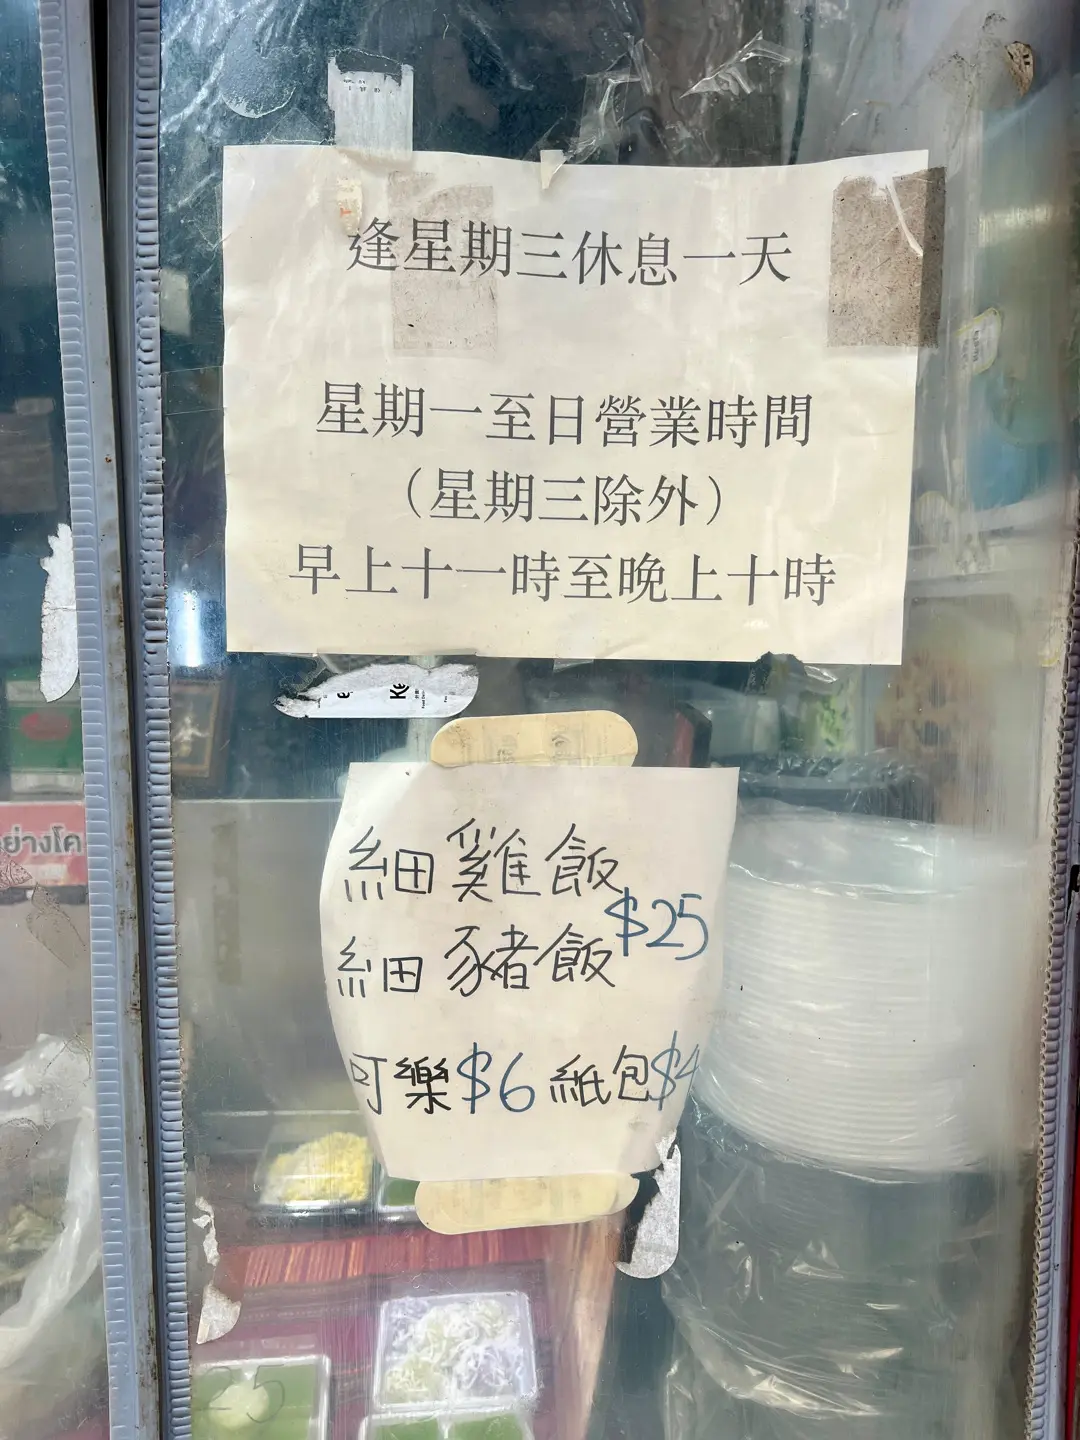 逢星期三休息一天
星期一至日營業時間
（星期三除外）
早上十一時至晚上十時
細雞飯
$25
細豬飯
可樂$6 紙包$4
ย่างโค
25